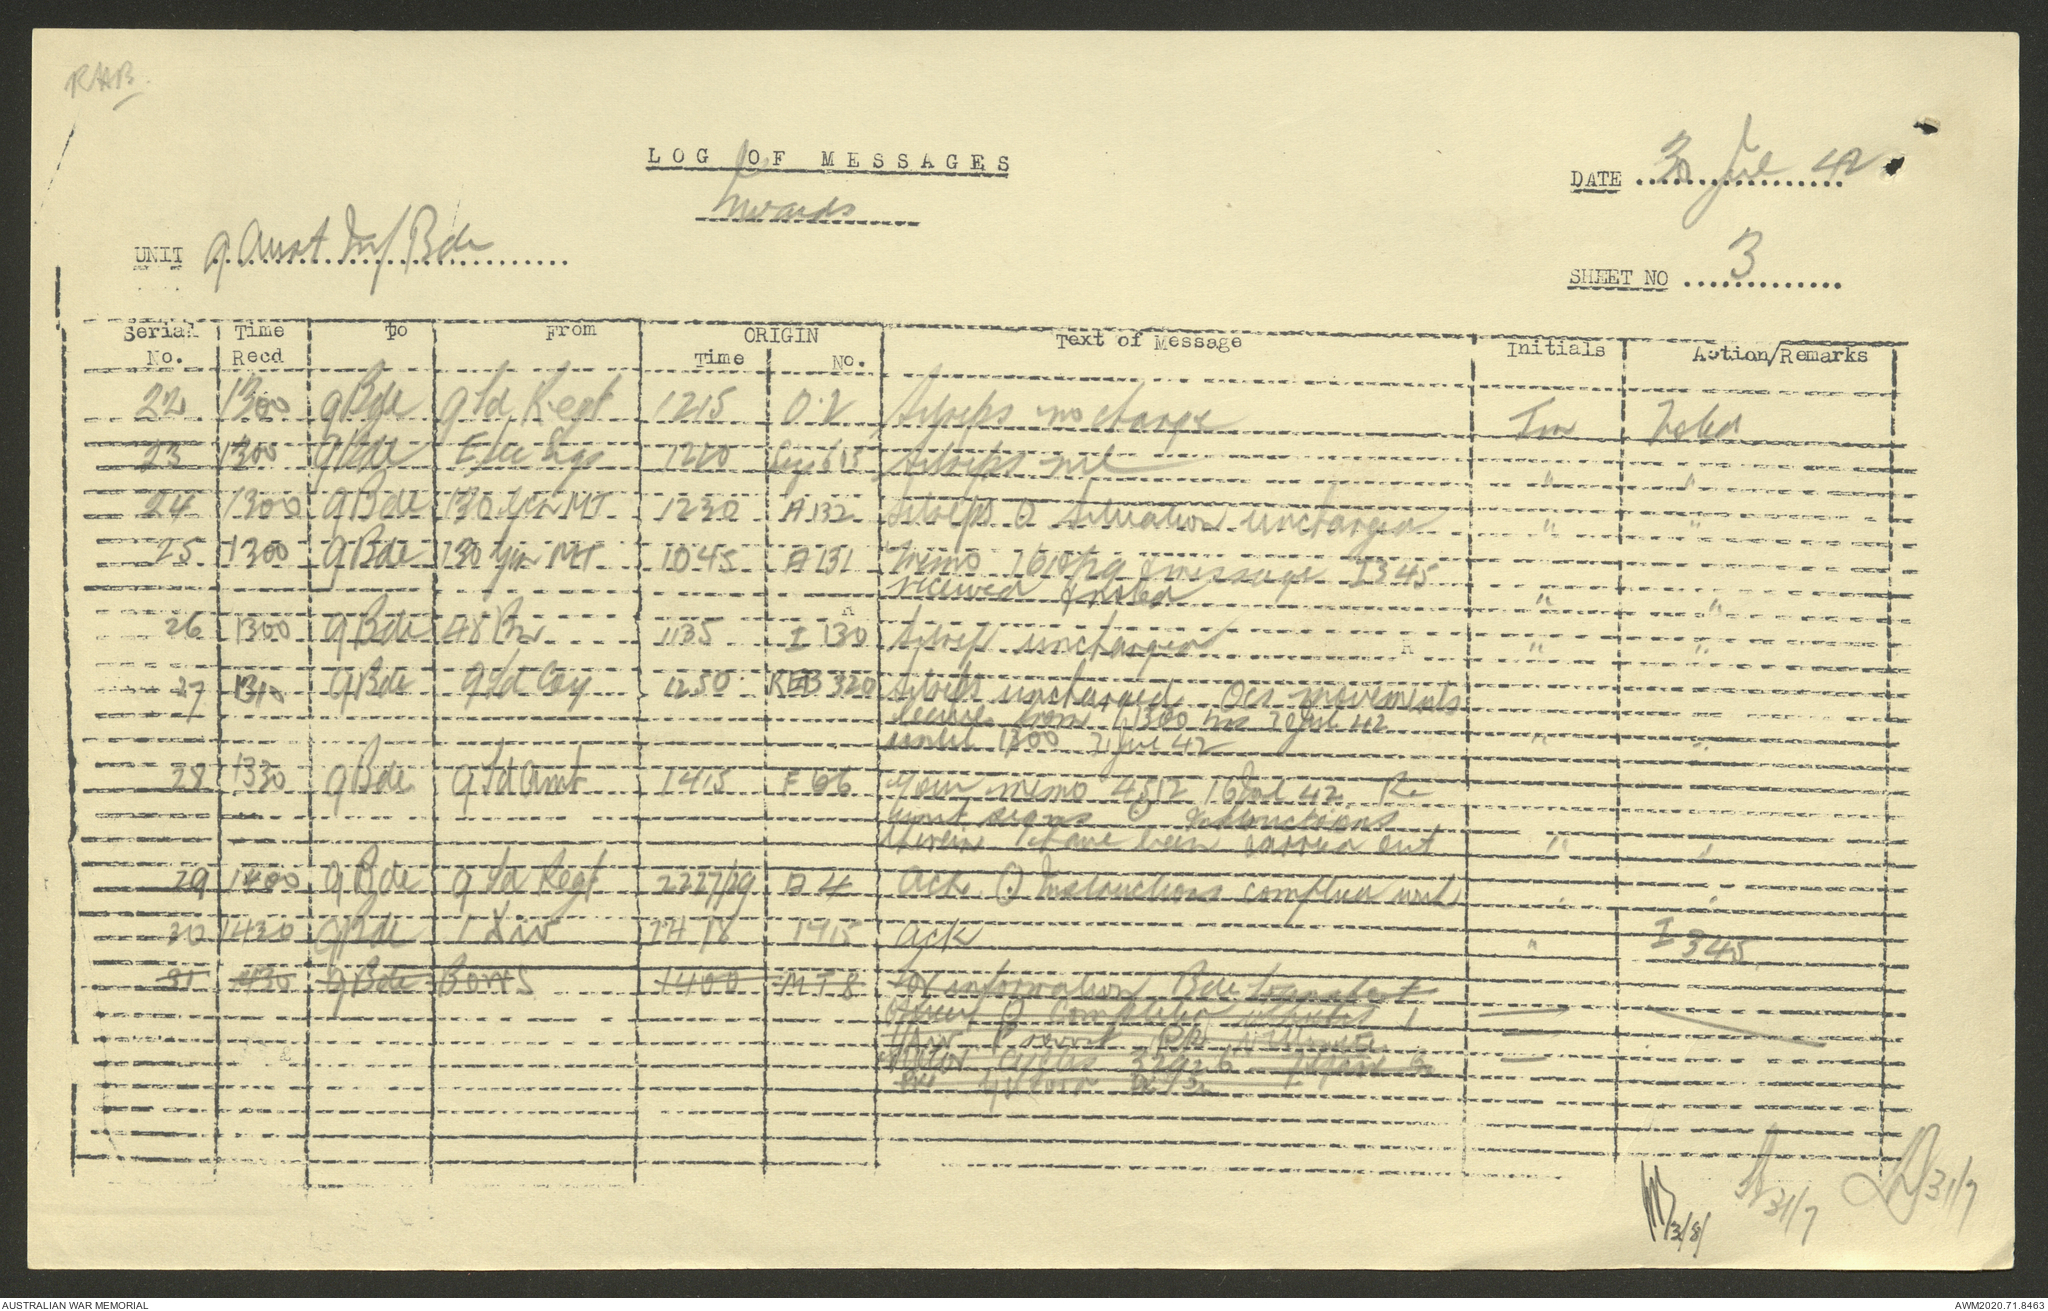 RHB
LOG OF MESSAGES
Inwards
DATE 30 Jul 42
UNIT 9 Aust Inf Bde
SHEET NO 3
Serial No. Time Recd To From ORIGIN Time No. Text of Message Initials Action/Remarks
22 1300 9 Bde 9 Fd Regt 1215 O.2 Sitreps no change Noted
23 1300 9 Bde Sigs 1220 615 Sitreps nil " "
24 1300 9 Bde 130 Gen MT 1230 A132 Sitreps O Situation unchanged " "
25 1300 9 Bde 130 Gen MT 1045 A131 Memo & message I345
received & noted " "
26 1300 9 Bde 48 Bn 1135 I 130 Sitrep unchanged " "
27 1310 9 Bde 9 Fd Coy 1250 REB 320 Sitreps unchanged Ocs movements
from 1300 hrs Jul 42
until 1300 31 Jul 42 " "
28 1330 9 Bde 9 Fd Amb 1415 F 66 Your memo 4512 16 Jul 42 Re
unit signs O Instructions
therein have been carried out " "
29 1400 9 Bde 9 Fd Regt 2227/29 A 4 Ack O Instructions complied with
30 1430 9 Bde 1 Div 1418 1915 Ack " I 345
31 1430 9 Bde 1400 MT 8 For information Bde transport
Officer O vehicles 1
Provost
Motor cycles 32926
31/8/
31/7
31/7
AUSTRALIAN WAR MEMORIAL
AWM2020.71.8463